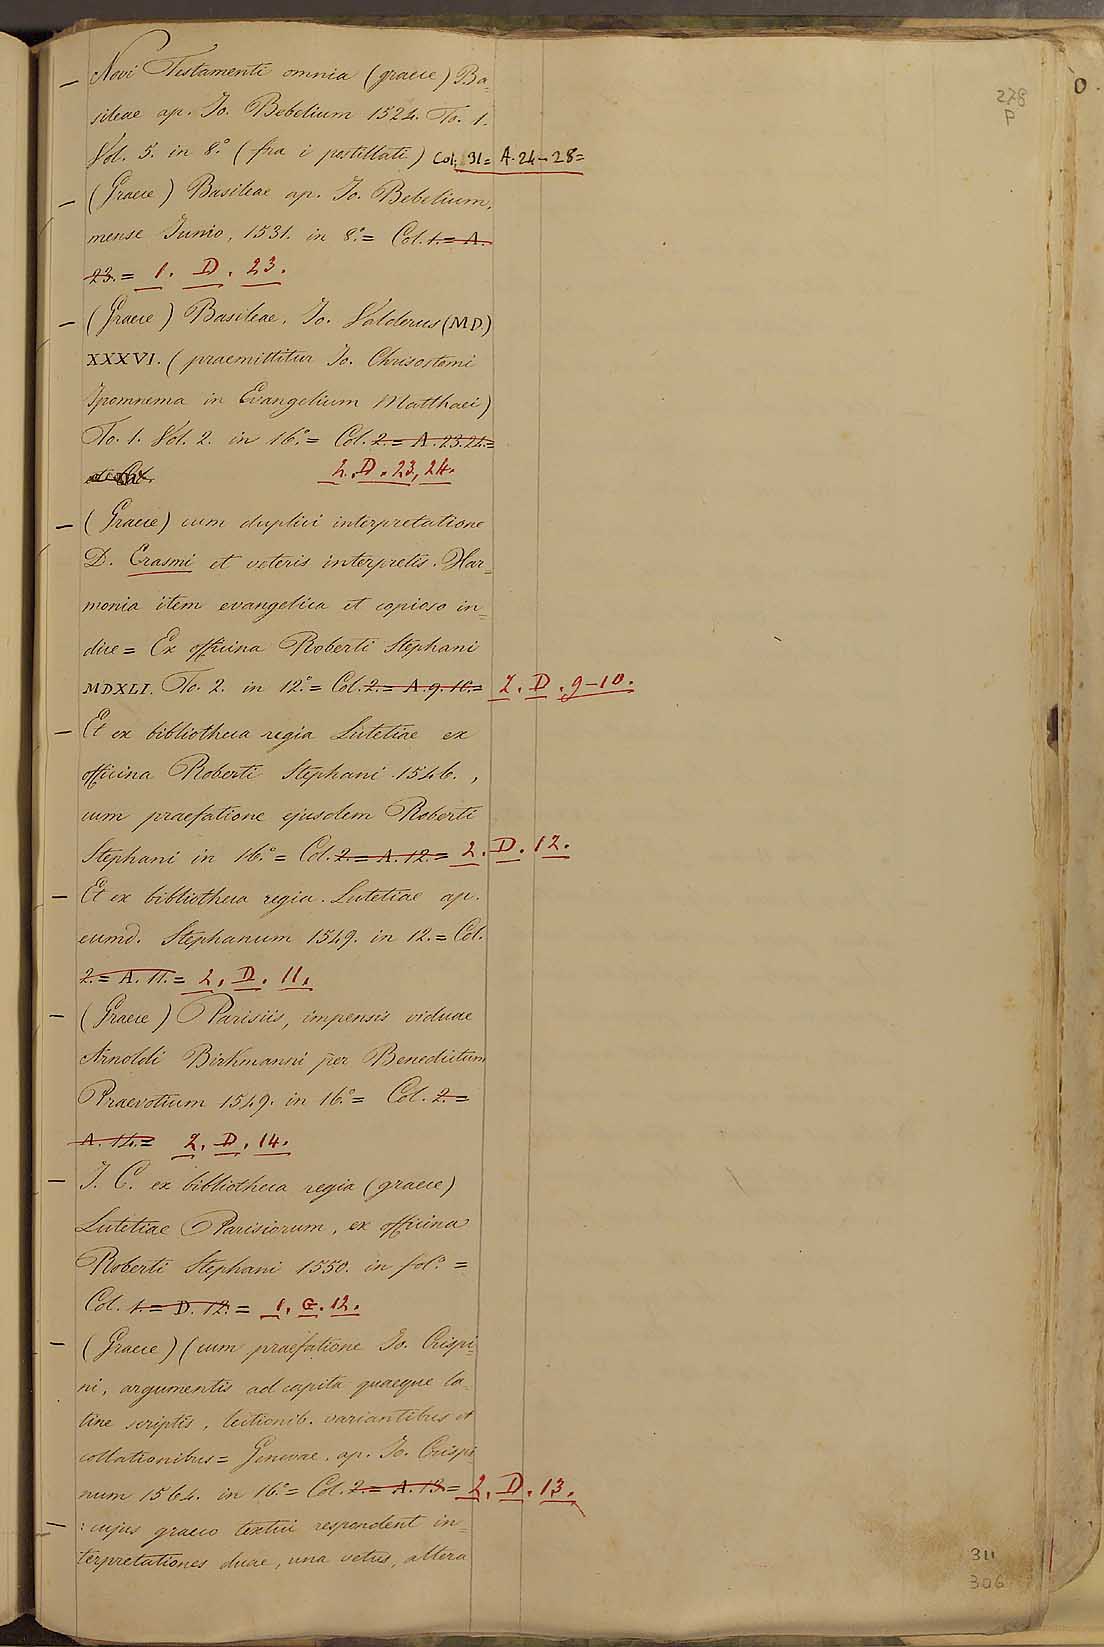 278
P
0.
— Novi Testamenti omnia (graece) Ba=
sileae ap. Jo. Bebelium 1524. To. 1.
Vol. 5. in 8.° (fra i postillati) Col: 31= A. 24-28=
— (Graece) Basileae ap. Jo. Bebelium,
mense Junio, 1531. in 8.°= Col. 1.= A.
23.= 1. D. 23.
— (Graece) Basileae, Jo. Valderus (MD)
XXXVI. (praemittitur Jo. Chrisostomi
Ipomnema in Evangelium Matthaei)
To. 1. Vol. 2. in 16.°= Col. 2.= A. 23.24.=
2. D. 23, 24.
— (Graece) cum duplici interpretatione
D. Erasmi et veteris interpretis. Har=
monia item evangelica et copioso in=
dice= Ex officina Roberti Stephani
MDXLI. To. 2. in 12.°= Col. 2.= A. 9. 10.= 2. D. 9-10.
— Et ex bibliotheca regia Lutetiae ex
officina Roberti Stephani 1546.,
cum praefatione ejusdem Roberti
Stephani in 16.°= Col. 2.= A. 12.= 2. D. 12.
— Et ex bibliotheca regia. Lutetiae ap.
eumd. Stephanum 1549. in 12.= Col.
2.= A. 11.= 2. D. 11.
— (Graece) Parisiis, impensis viduae
Arnoldi Birkmanni per Benedictum
Praevotium 1549. in 16.°= Col. 2.=
A. 14.= 2. D. 14.
— J. C. ex bibliotheca regia (graece)
Lutetiae Parisiorum, ex officina
Roberti Stephani 1550. in fol.° =
Col. 1.= D. 12.= 1. G. 12.
— (Graece) (cum praefatione Jo. Crispi=
ni, argumentis ad capita quaeque la=
tine scriptis, lectionib. variantibus et
collationibus= Genevae, ap. Jo. Crispi
num 1564. in 16.°= Col. 2.= A. 13.= 2. D. 13.
— : cujus graeco textui respondent in=
terpretationes duae, una vetus, altera
311
306